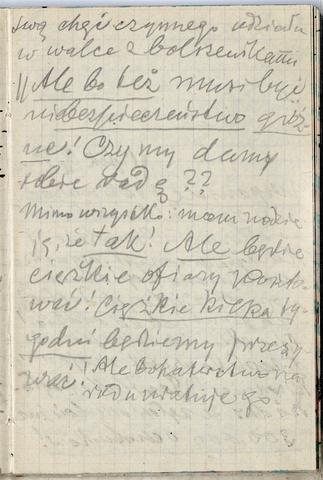 swą chęć czynnego udziału
w walce z bolszewikami
|| Ale bo też musi być
niebezpieczeństwo groź-
ne! Czy my damy
sobie radę??
Mimo wszystko: mam nadzie
ję, że tak! Ale będzie
ciężkie ofiary koszto-
wać! Ciężkie kilka ty-
godni będziemy przeży
wać! Ale bohaterstwo na
rodu uratuje go.